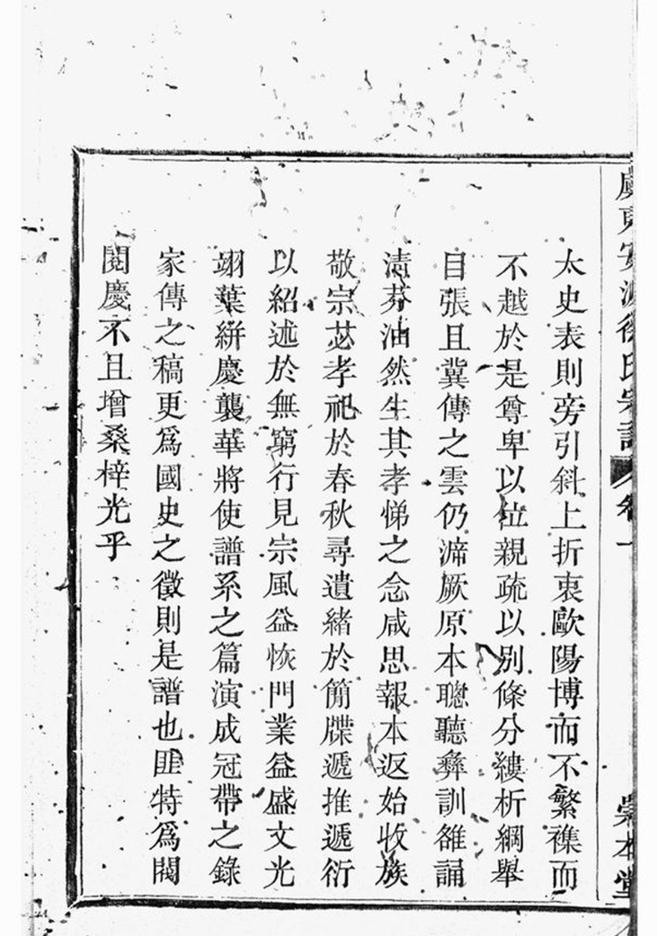 東安
氏宗譜
卷一
本堂
太史表則旁引斜上折衷歐陽博而不繁襍而
不越於是尊卑以位親疏以別條分縷析綱舉
目張且冀傳之雲仍諦厥原本聰聽彝訓雒誦
清芬油然生其孝悌之念咸思報本返始收族
敬宗苾孝祀於春秋尋遺緒於簡牒遞推遞衍
以紹述於無窮行見宗風益恢門業益盛文光
翊葉絣慶襲華將使譜系之篇演成冠帶之錄
家傳之稿更爲國史之徵則是譜也匪特爲閥
閱慶不且增桑梓光乎